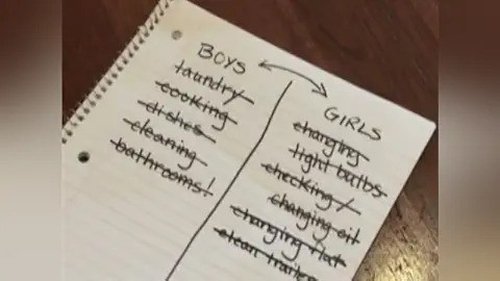 BOYS
laundry
cooking
dishes
cleaning
bathrooms!
GIRLS
changing
light bulbs
checking /
changing oil
changing flat
clean trailer